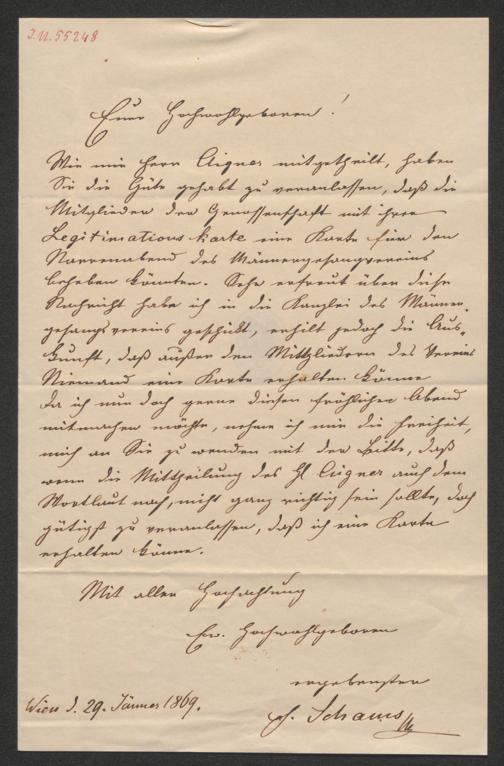 I.N. 55248
Euer Hochwohlgeboren!
Wie mir Herr Aigner mitgetheilt, haben
Sie die Güte gehabt zu veranlassen, daß die
Mitglieder der Genossenschaft mit ihrer
Legitimationskarte eine Karte für den
Narrenabend des Männergesangvereins
beheben könnten. Sehr erfreut über diese
Nachricht habe ich in die Kanzlei des Männer-
gesangsvereins geschickt, erhielt jedoch die Aus-
kunft, daß außer den Mitgliedern des Vereins
Niemand eine Karte erhalten könne
Da ich nun doch gerne diesen fröhlichen Abend
mitmachen möchte, nehme ich mir die Freiheit,
mich an Sie zu wenden mit der Bitte, daß
wenn die Mittheilung des H Aigner auch dem
Wortlaut nach, nicht ganz richtig sein sollte, doch
gütigst zu veranlassen, daß ich eine Karte
erhalten könne.
Mit aller Hochachtung
Ew. Hochwohlgeboren
ergebenster
Schams
Wien d. 29. Jänner 1869.